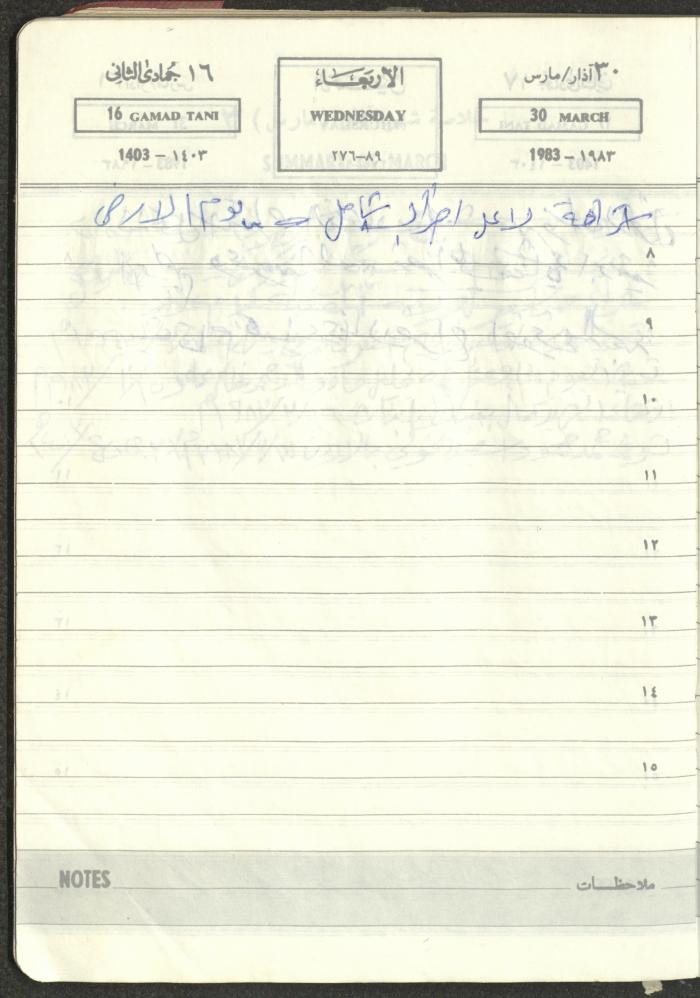 ٣٠ آذار/مارس
الأربعاء
١٦ جمادى الثاني
30 MARCH
WEDNESDAY
16 GAMAD TANI
1983 – ١٩٨٣
٢٧٦–٨٩
1403 – ١٤٠٣
اضراب شامل يوم الارض
٨
٩
١٠
١١
١٢
١٣
١٤
١٥
NOTES ملاحظات